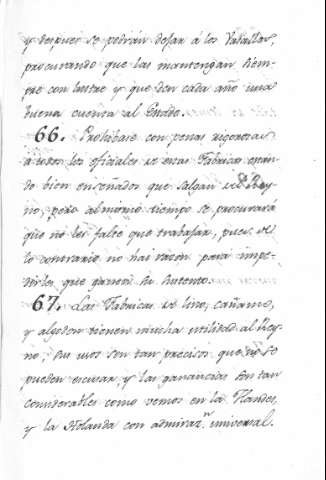 y despues se podrán dejar á los Vasallos,
procurando que las mantengan siem-
pre con lustre y que den cada año una
buena cuenta al Estado.
66. Prohibase con penas rigorosas
á todos los oficiales de estas Fabricas están-
do bien enseñados que salgan del Rey-
no, pero al mismo tiempo se procurará
que no les falte que trabajar, pues de
lo contrario no hai razon para impe-
dirles que ganen su sustento.
67. Las Fabricas de lino, cañamo,
y algodon tienen mucha utilidad al Rey-
no, sus usos son tan precisos que no se
pueden escusar, y las ganancias son tan
considerables como vemos en la Flandes,
y la Holanda con admiraz.n universal.